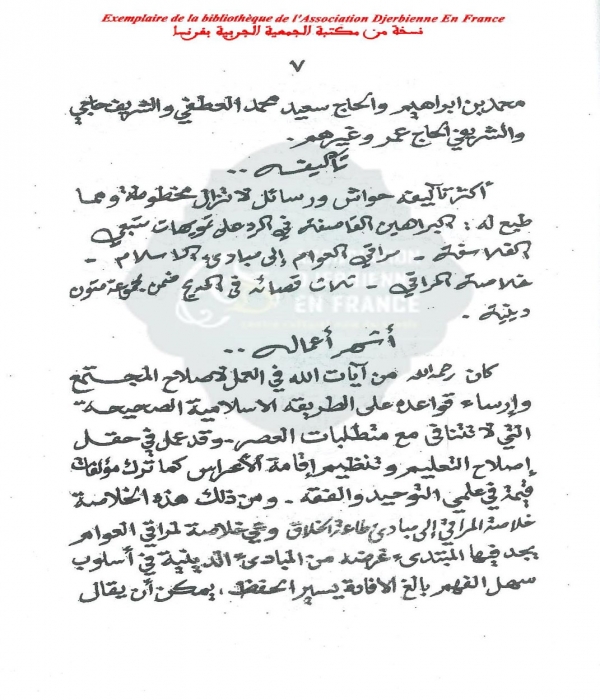 Exemplaire de la bibliothèque de l'Association Djerbienne En France
نسخة من مكتبة الجمعية الجربية بفرنسا
٧
محمد بن ابراهيم والحاج سعيد محمد العطفي والشريف حاجي
والشريفي الحاج عمر وغيرهم.
تآليفه ..
أكثر تآليفه حواش ورسائل لا تزال مخطوطة ومما
طبع له: البراهين القاصفة في الرد على تمويهات متبعي
الفلاسفة - مراقي العوام إلى مبادئ الاسلام -
خلاصة المراقي - ثلاث قصائد في ضمن مجموعة متون
دينية.
أشهر أعماله ..
كان رحمه الله من آيات الله في العمل لاصلاح المجتمع
وإرساء قواعده على الطريقة الاسلامية الصحيحة
التي لا تتنافى مع متطلبات العصر - وقد عمل في حقل
إصلاح التعليم وتنظيم إقامة الأعراس كما ترك مؤلفات
قيمة في علمي التوحيد والفقه - ومن ذلك هذه الخلاصة
خلاصة المراقي إلى مبادئ طاعة الخلاق وهي خلاصة لمراقي العوام
يجد فيها المبتدىء غرضه من المبادىء الدينية في أسلوب
سهل الفهم بالغ الافادة يسير الحفظ، يمكن أن يقال
ASSOCIATION
DJERBIENNE
EN FRANCE